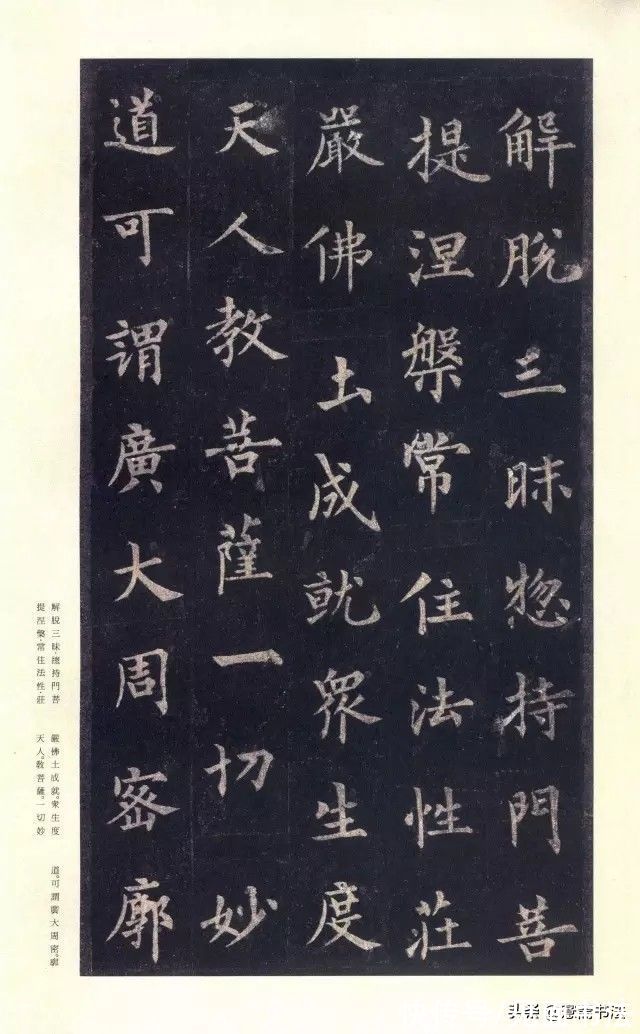 解脫三昧惣持門菩
提涅槃常住法性莊
嚴佛土成就眾生度
天人教菩薩一切妙
道可謂廣大周密廓
解脫三昧總持門菩
提涅槃常住法性莊
嚴佛土成就。衆生度
天人。敎菩薩。一切妙
道。可謂廣大周密。廓
头条
书法